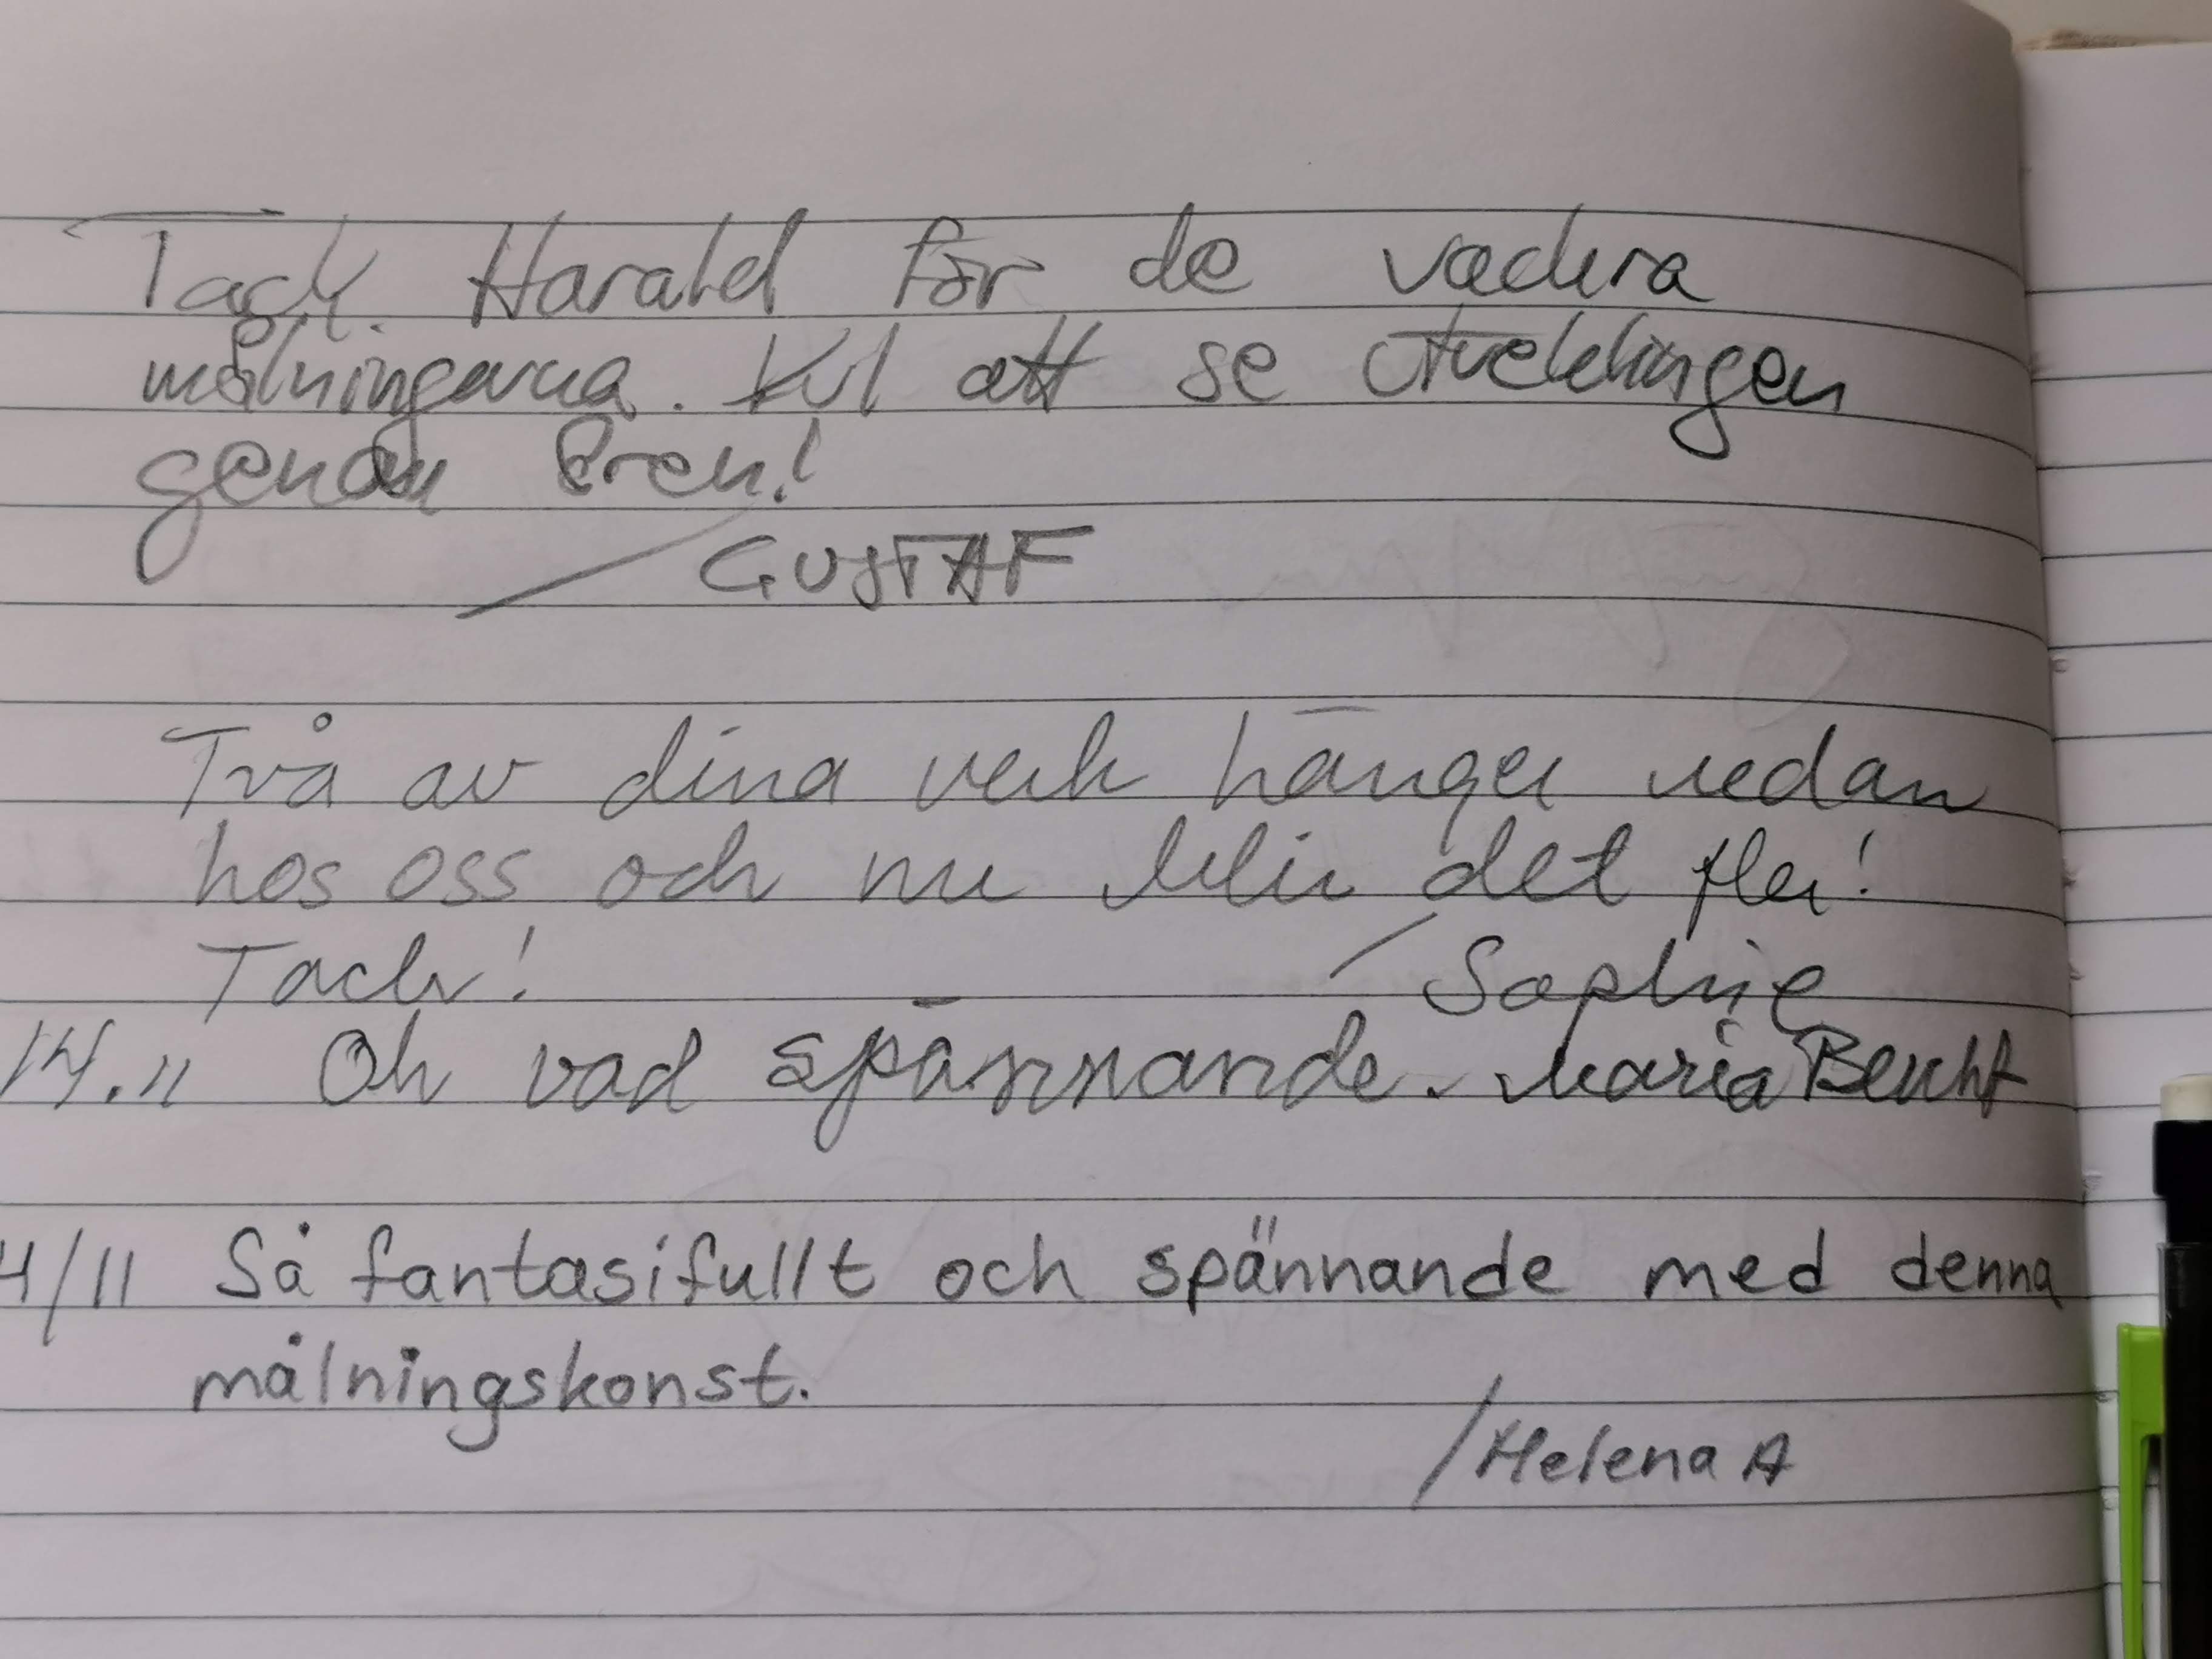 Tack Harald för de vackra
målningarna. Kul att se utvecklingen
genom åren!
/ GUSTAF
Två av dina verk hänger redan
hos oss och nu blir det fler!
Tack!
/ Sophie
14.11 Oh vad spännande. Maria
4/11 Så fantasifullt och spännande med denna
målningskonst.
/Helena A